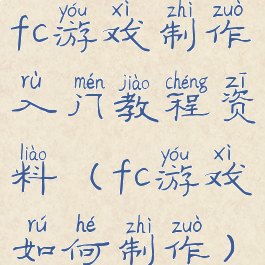 yóu xì zhì zuò
fc游戏制作
rù mén jiào chéng zī
入门教程资
liào yóu xì
料（fc游戏
rú hé zhì zuò
如何制作）